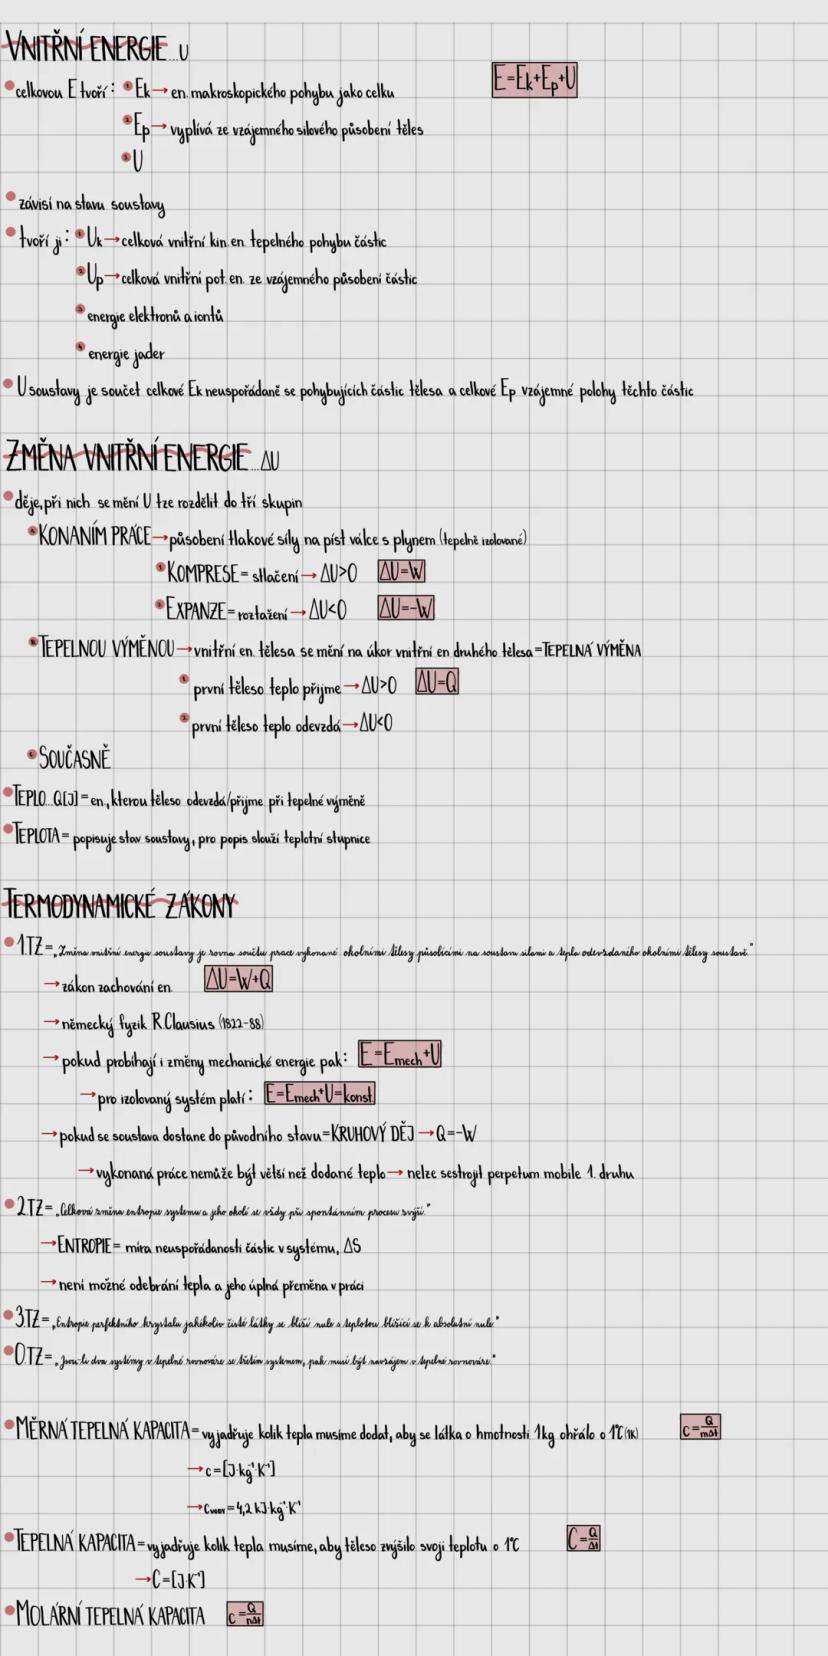 VNITŘNÍ ENERGIE...U
• celkovou E tvoří: 1. Ek → en. makroskopického pohybu jako celku
E=Ek+Ep+U
2. Ep → vyplívá ze vzájemného silového působení těles
3. U
• závisí na stavu soustavy
• tvoří ji: 1. Uk → celková vnitřní kin. en. tepelného pohybu částic
2. Up → celková vnitřní pot. en. ze vzájemného působení částic
3. energie elektronů a iontů
4. energie jader
• U soustavy je součet celkové Ek neuspořádaně se pohybujících částic tělesa a celkové Ep vzájemné polohy těchto částic
ZMĚNA VNITŘNÍ ENERGIE...ΔU
• děje, při nich se mění U lze rozdělit do tří skupin
A. KONANÍM PRÁCE → působení tlakové síly na píst válce s plynem (tepelně izolované)
1. KOMPRESE = stlačení → ΔU>0 ΔU=W
2. EXPANZE = roztažení → ΔU<0 ΔU=-W
B. TEPELNOU VÝMĚNOU → vnitřní en. tělesa se mění na úkor vnitřní en. druhého tělesa = TEPELNÁ VÝMĚNA
1. první těleso teplo přijme → ΔU>0 ΔU=Q
2. první těleso teplo odevzdá → ΔU<0
C. SOUČASNĚ
• TEPLO...Q[J] = en., kterou těleso odevzdá/přijme při tepelné výměně
• TEPLOTA = popisuje stav soustavy, pro popis slouží teplotní stupnice
TERMODYNAMICKÉ ZÁKONY
• 1.TZ = „Změna vnitřní energie soustavy je rovna součtu práce vykonané okolními tělesy působícími na soustavu silami a tepla odevzdaného okolními tělesy soustavě."
→ zákon zachování en. ΔU=W+Q
→ německý fyzik R.Clausius (1822-88)
→ pokud probíhají i změny mechanické energie pak: E=Emech+U
→ pro izolovaný systém platí: E=Emech+U=konst.
→ pokud se soustava dostane do původního stavu = KRUHOVÝ DĚJ → Q=-W
→ vykonaná práce nemůže být větší než dodané teplo → nelze sestrojit perpetum mobile 1. druhu
• 2.TZ = „Celková změna entropie systému a jeho okolí se vždy při spontánním procesu zvýší."
→ ENTROPIE = míra neuspořádanosti částic v systému, ΔS
→ není možné odebrání tepla a jeho úplná přeměna v práci
• 3.TZ = „Entropie perfektního krystalu jakékoliv čisté látky se blíží nule s teplotou blížící se k absolutní nule."
• 0.TZ = „Jsou-li dva systémy v tepelné rovnováze se třetím systémem, pak musí být navzájem v tepelné rovnováze."
• MĚRNÁ TEPELNÁ KAPACITA = vyjadřuje kolik tepla musíme dodat, aby se látka o hmotnosti 1kg ohřálo o 1°C (1K) c=Q/mΔt
→ c=[J·kg⁻¹·K⁻¹]
→ cvody=4,2 kJ·kg⁻¹·K⁻¹
• TEPELNÁ KAPACITA = vyjadřuje kolik tepla musíme, aby těleso zvýšilo svoji teplotu o 1°C C=Q/Δt
→ C=[J·K⁻¹]
• MOLÁRNÍ TEPELNÁ KAPACITA c=Q/nΔt